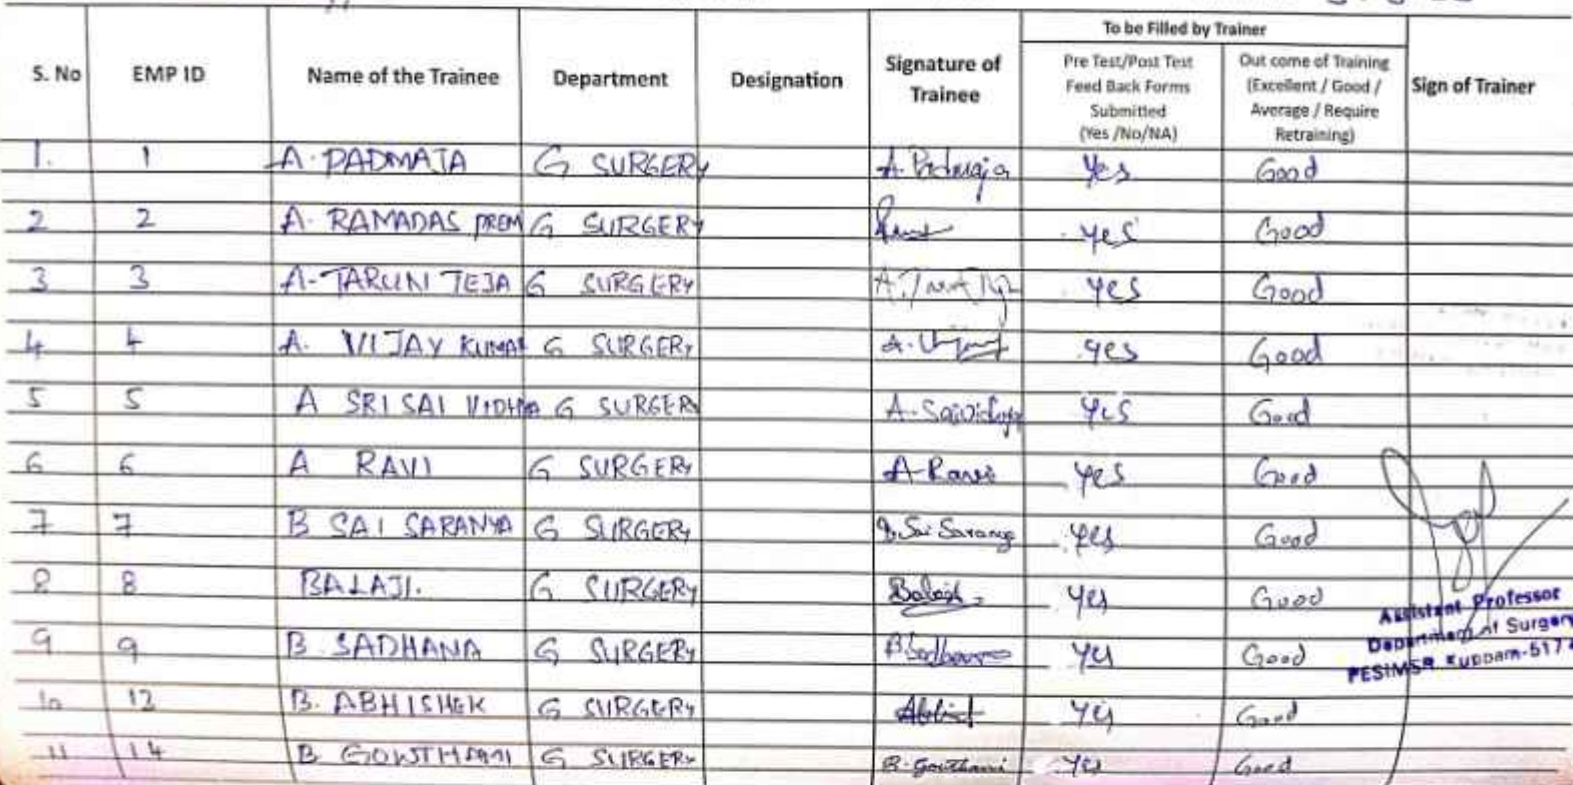 To be Filled by Trainer
S. No EMP ID Name of the Trainee Department Designation Signature of Trainee Pre Test/Post Test Feed Back Forms Submitted (Yes /No/NA) Out come of Training (Excellent / Good / Average / Require Retraining) Sign of Trainer
1. 1 A. PADMAJA G SURGERY A. Padmaja Yes Good
2 2 A. RAMADAS PREM G SURGERY yes Good
3 3 A. TARUN TEJA G SURGERY yes Good
4 4 A. VIJAY KUMAR G SURGERY yes Good
5 5 A SRI SAI VIDHYA G SURGERY A. Saividhya yes Good
6 6 A RAVI G SURGERY A-Ravi yes Good
7 7 B SAI SARANYA G SURGERY B. Sai Saranya yes Good
8 8 BALAJI. G SURGERY Balaji yes Good
9 9 B. SADHANA G SURGERY B Sadhana yes Good
10 12 B. ABHISHEK G SURGERY yes Good
11 14 B GOWTHAMI G SURGERY B. Gowthami yes Good
Assistant Professor
Department of Surgery
PESIMSR Kuppam-517